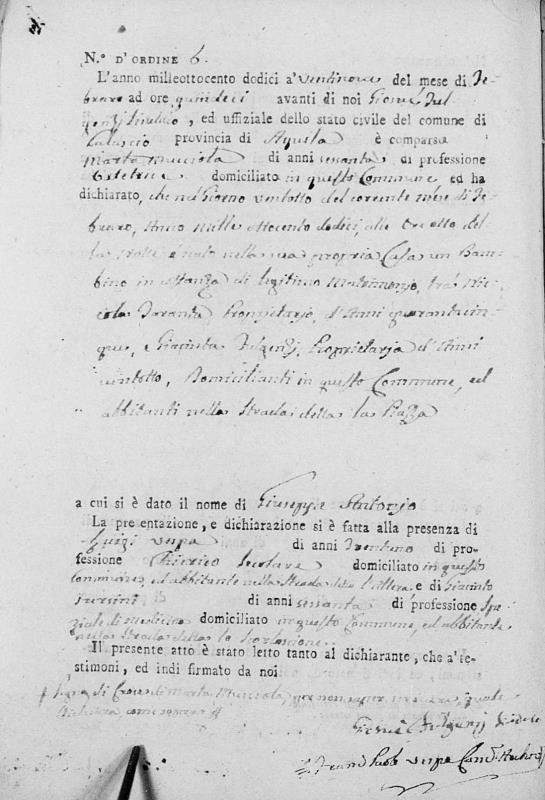 N.º D'ORDINE 6.
L'anno milleottocento dodici a' ventinove del mese di Fe-
braro ad ore quindeci avanti di noi Giosuè Ful
genzj Sindaco, ed uffiziale dello stato civile del comune di
Calascio provincia di Aquila è comparsa
Marta Mucciola di anni sessanta di professione
Ostetrice domiciliato in questo Commune ed ha
dichiarato, che nel Giorno ventotto del corrente mese di Fe-
braro, Anno mille ottocento dodici, alle Ore otto del
la Notte è nato nella sua propria Casa un Bam-
bino in costanza di legitimo Matrimonjo, tra' Nic
cola Taranta Proprietarjo, d'Anni quarantacin-
que, e Giacinta Fulgenzj, Proprietarja d'Anni
ventotto, Domicilianti in questo Commune, ed
abbitanti nella Strada detta la Piazza
a cui si è dato il nome di Giuseppe Antonjo
La presentazione, e dichiarazione si è fatta alla presenza di
Luigi Vespa di anni Trentuno di pro-
fessione Chierico Secolare domiciliato in questo
Commune, ed abbitante nella Strada detta e di Giacinto
di anni sessanta di professione Spe
ziale di Medicina domiciliato in questo Commune, ed abbitante
nella Strada detta la
Il presente atto è stato letto tanto al dichiarante, che a' te-
stimoni, ed indi firmato da noi
Segno di Croce di Marta Mucciola, per non saper scrivere, quale
dichiara come sopra
Giosuè Fulgenzj Sindaco
Vespa Canc. Archiv.